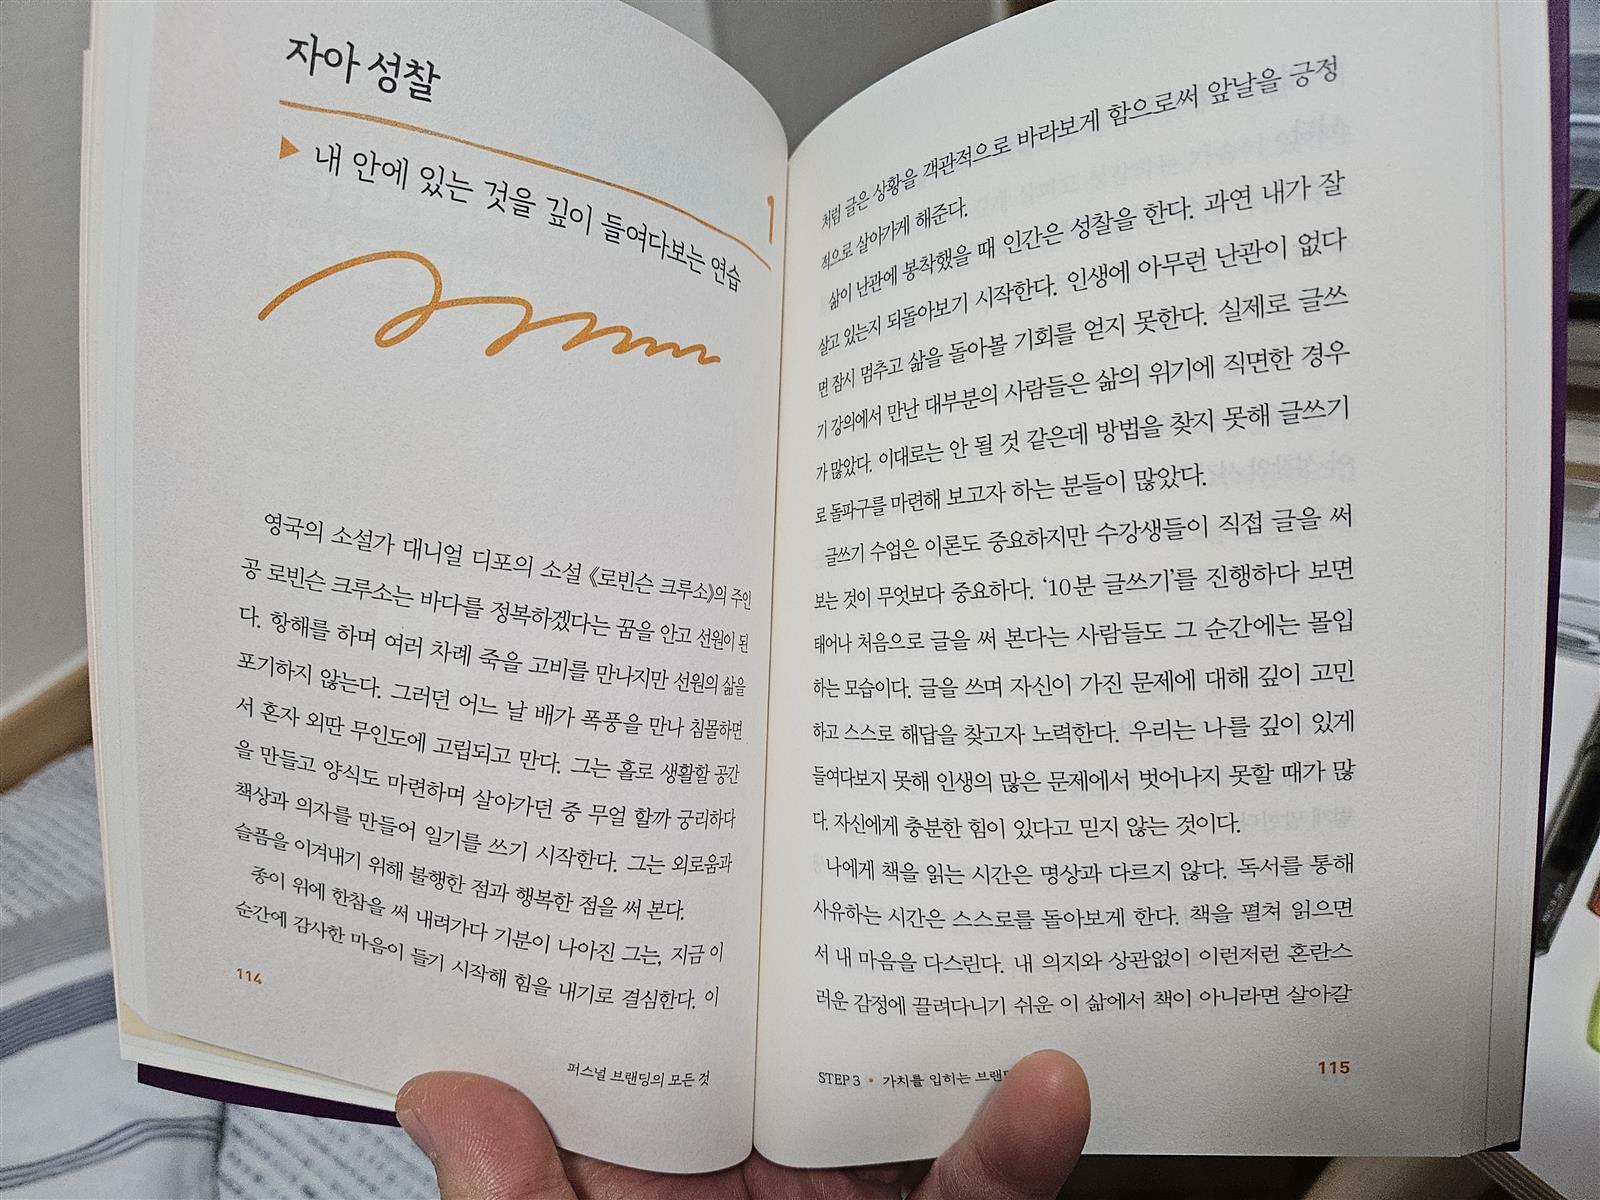 자아 성찰
1
▶ 내 안에 있는 것을 깊이 들여다보는 연습
영국의 소설가 대니얼 디포의 소설 《로빈슨 크루소》의 주인
공 로빈슨 크루소는 바다를 정복하겠다는 꿈을 안고 선원이 된
다. 항해를 하며 여러 차례 죽을 고비를 만나지만 선원의 삶을
포기하지 않는다. 그러던 어느 날 배가 폭풍을 만나 침몰하면
서 혼자 외딴 무인도에 고립되고 만다. 그는 홀로 생활할 공간
을 만들고 양식도 마련하며 살아가던 중 무얼 할까 궁리하다
책상과 의자를 만들어 일기를 쓰기 시작한다. 그는 외로움과
슬픔을 이겨내기 위해 불행한 점과 행복한 점을 써 본다.
종이 위에 한참을 써 내려가다 기분이 나아진 그는, 지금 이
순간에 감사한 마음이 들기 시작해 힘을 내기로 결심한다. 이
114
퍼스널 브랜딩의 모든 것
처럼 글은 상황을 객관적으로 바라보게 함으로써 앞날을 긍정
적으로 살아가게 해준다.
삶이 난관에 봉착했을 때 인간은 성찰을 한다. 과연 내가 잘
살고 있는지 되돌아보기 시작한다. 인생에 아무런 난관이 없다
면 잠시 멈추고 삶을 돌아볼 기회를 얻지 못한다. 실제로 글쓰
기 강의에서 만난 대부분의 사람들은 삶의 위기에 직면한 경우
가 많았다. 이대로는 안 될 것 같은데 방법을 찾지 못해 글쓰기
로 돌파구를 마련해 보고자 하는 분들이 많았다.
글쓰기 수업은 이론도 중요하지만 수강생들이 직접 글을 써
보는 것이 무엇보다 중요하다. ‘10분 글쓰기’를 진행하다 보면
태어나 처음으로 글을 써 본다는 사람들도 그 순간에는 몰입
하는 모습이다. 글을 쓰며 자신이 가진 문제에 대해 깊이 고민
하고 스스로 해답을 찾고자 노력한다. 우리는 나를 깊이 있게
들여다보지 못해 인생의 많은 문제에서 벗어나지 못할 때가 많
다. 자신에게 충분한 힘이 있다고 믿지 않는 것이다.
나에게 책을 읽는 시간은 명상과 다르지 않다. 독서를 통해
사유하는 시간은 스스로를 돌아보게 한다. 책을 펼쳐 읽으면
서 내 마음을 다스린다. 내 의지와 상관없이 이런저런 혼란스
러운 감정에 끌려다니기 쉬운 이 삶에서 책이 아니라면 살아갈
STEP 3 • 가치를 입히는
115